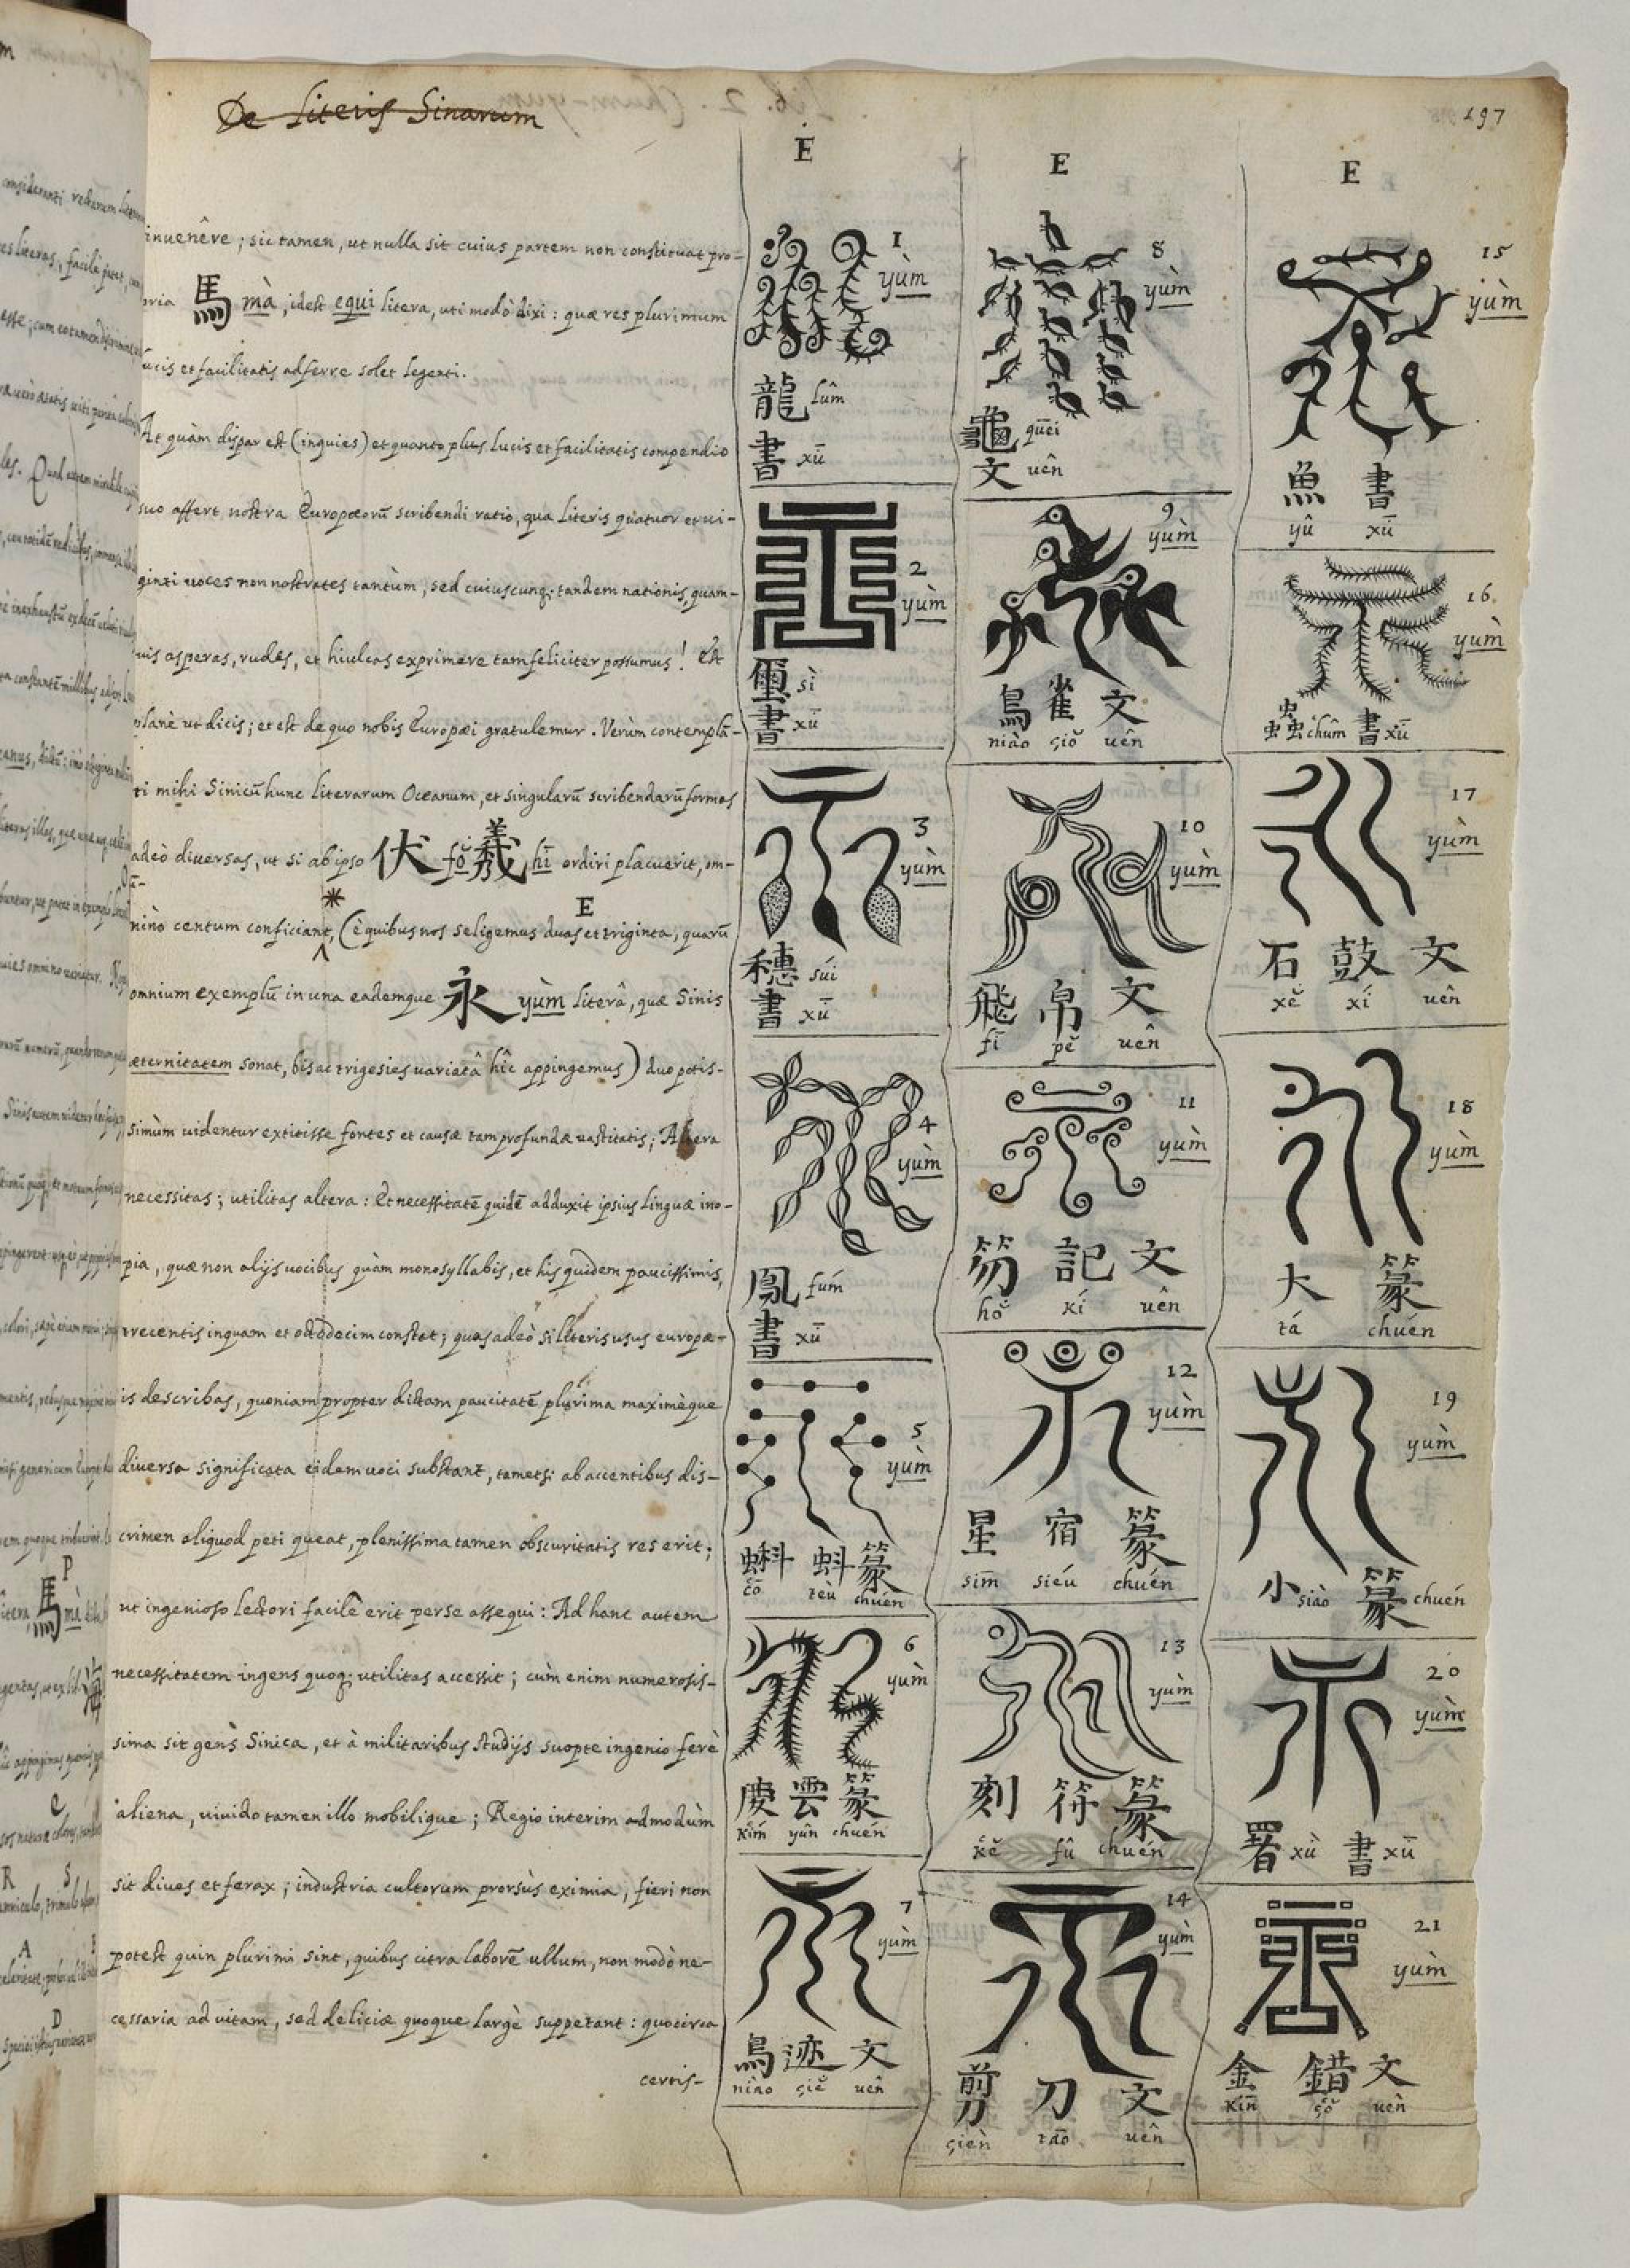 De literis Sinarum
197
inuenêre; sic tamen, ut nulla sit cuius partem non constituat pro-
pria 馬 mà, idest equi litera, uti modò dixi: quæ res plurimum
lucis et facilitatis adferre solet legenti.
At quàm dispar est (inquies) et quanto plus lucis et facilitatis compendio
suo affert nostra Europæorũ scribendi ratio, qua literis quatuor et ui-
ginti uoces non nostrates tantùm, sed cuiuscunq; tandem nationis, quam-
uis asperas, rudes, et hiulcas exprimere tam feliciter possumus! Est
planè ut dicis; et est de quo nobis Europæi gratulemur. Verùm contemplã-
ti mihi Sinicũ hunc literarum Oceanum, et singularũ scribendarũ formas
adeò diuersas, ut si ab ipso 伏 fŏ 羲 hī ordiri placuerit, om-
nino centum conficiant, (è quibus nos seligemus duas et triginta, quarũ
E
omnium exemplũ in una eademque 永 yùm literâ, quæ Sinis
æternitatem sonat, bis ac trigesies uariatâ hîc appingemus) duo potis-
simùm uidentur extitisse fontes et causæ tam profundæ uastitatis; Altera
necessitas; utilitas altera: Et necessitatẽ quidẽ adduxit ipsius linguæ ino-
pia, quæ non alijs uocibus quàm monosyllabis, et his quidem paucissimis,
trecentis inquam et octodecim constet; quas adeò si literis usus europæ-
is describas, quoniam propter dictam paucitatẽ plurima maximèque
diuersa significata eidem uoci substant, tametsi ab accentibus dis-
crimen aliquod peti queat, plenissima tamen obscuritatis res erit;
ut ingenioso lectori facilè erit per se assequi: Ad hanc autem
necessitatem ingens quoq; utilitas accessit; cùm enim numerosis-
sima sit gens Sinica, et à militaribus studijs suopte ingenio ferè
aliena, uiuido tamen illo mobilique; Regio interim admodùm
sit diues et ferax; industria cultorum prorsùs eximia, fieri non
potest quin plurimi sint, quibus citra laborẽ ullum, non modò ne-
cessaria ad uitam, sed deliciæ quoque largè suppetant: quocirca
certis-
E
1
yùm
龍 lûm
書 xū
2
yùm
璽 sì
書 xū
3
yùm
穗 súi
書 xū
4
yùm
鳳 fúm
書 xū
5
yùm
蝌 蚪 篆
cō teù chuén
6
yùm
慶 雲 篆
kím yûn chuén
7
yùm
鳥 迹 文
niào çiĕ uên
E
8
yùm
龜 quēi
文 uên
9
yùm
鳥 雀 文
niào çiŏ uên
10
yùm
飛 帛 文
fī pĕ uên
11
yùm
笏 記 文
hŏ kí uên
12
yùm
星 宿 篆
sīm siéu chuén
13
yùm
刻 符 篆
kĕ fû chuén
14
yùm
剪 刀 文
çièn tāo uên
E
15
yùm
魚 書
yû xū
16
yùm
蟲 chûm 書 xū
17
yùm
石 鼓 文
xĕ xí uên
18
yùm
大 篆
tá chuén
19
yùm
小 siào 篆 chuén
20
yùm
署 xù 書 xū
21
yùm
金 錯 文
kīn çŏ uên